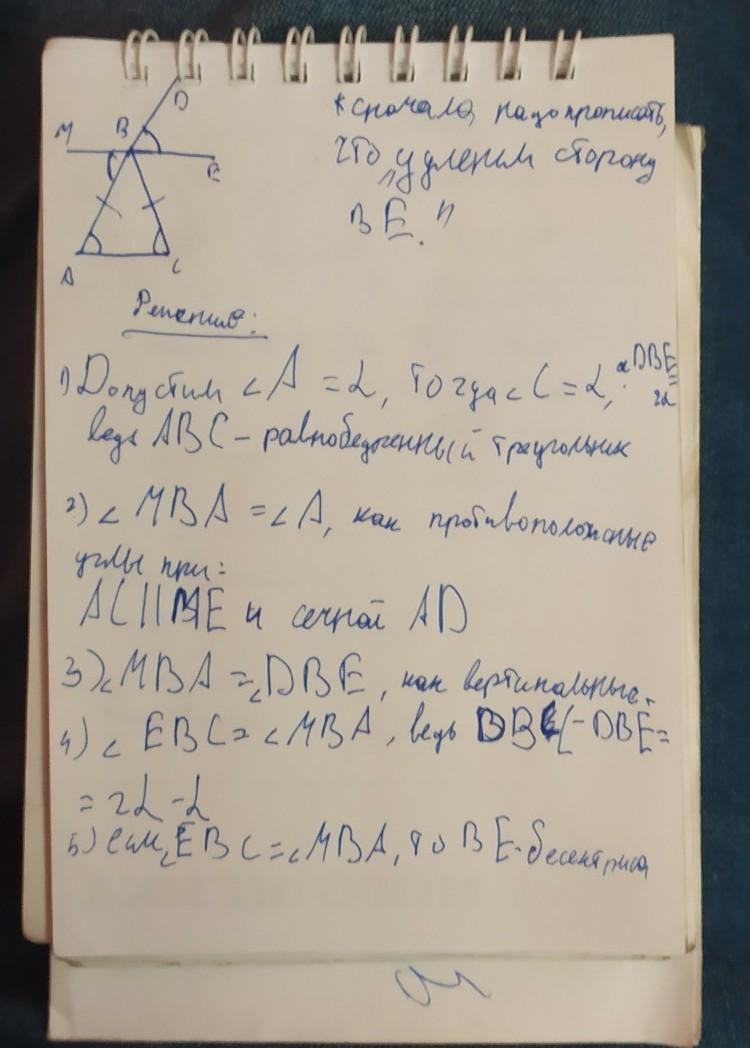 D
M
B
E
A
C
* сначала, надо прописать,
что „удленим сторону
BE."
Решение:
1) Допустим ∠A = α, тогда ∠C = α, DBE
2α
ведь ABC – равнобедренный треугольник
2) ∠MBA = ∠A, как противоположные
углы при:
AC || ME и сечной AD
3) ∠MBA = ∠DBE, как вертикальные.
4) ∠EBC = ∠MBA, ведь DBC - DBE =
= 2α - α
5) если ∠EBC = ∠MBA, то BE - бесектриса